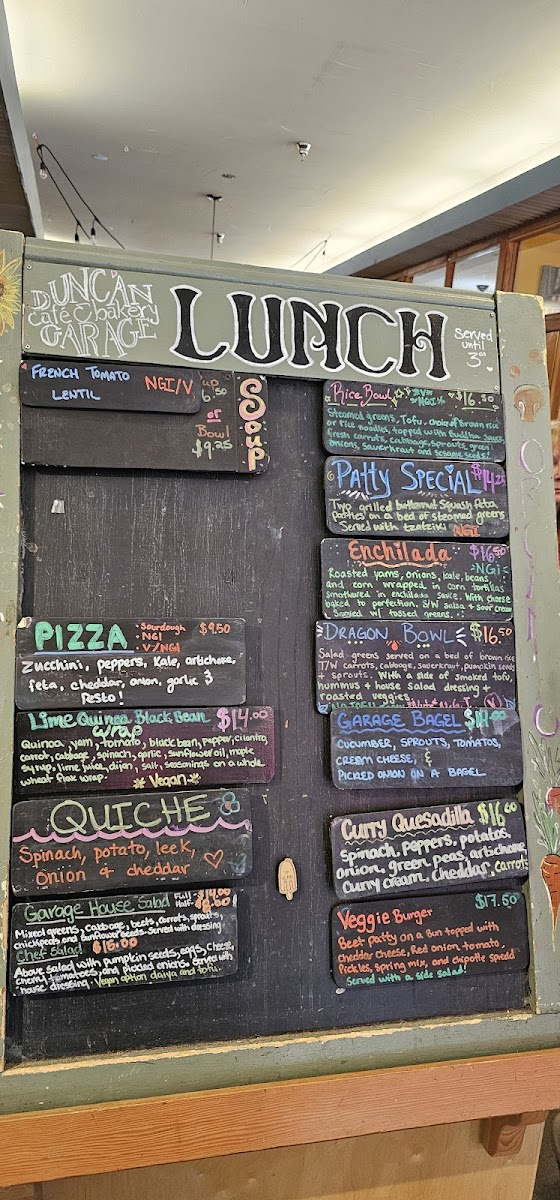 DUNCAN
Café & bakery
GARAGE
LUNCH
Served
until
3
FRENCH TOMATO
LENTIL
NGI/V
cup
6.50
or
Bowl
$9.25
Soup
PIZZA
Sourdough
NGI
V/NGI
$9.50
Zucchini, peppers, Kale, artichoke,
feta, cheddar, onion, garlic &
Pesto!
Lime Quinoa Black Bean $14.00
Wrap
Quinoa, yam, tomato, black bean, pepper, cilantro,
carrot, cabbage, spinach, garlic, sunflower oil, maple
syrup, lime juice, dijon, salt, seasonings on a whole
wheat flax wrap.
Vegan
QUICHE
Spinach, potato, leek,
Onion & cheddar
Garage House Salad
Full - $14.00
Half -
Mixed greens, cabbage, beets, carrots, sprouts,
chickpeas, and sunflower seeds. Served with dressing
Chef Salad $15.00
Above salad with pumpkin seeds, eggs, cheese,
cherry tomatoes, and pickled onions. Served with
house dressing. Vegan option daiya and tofu.
Rice Bowl
$16.50
Steamed greens, Tofu, choice of brown rice
or rice noodles, topped with Buddha Sauce,
fresh carrots, cabbage, sprouts, green
onions, sauerkraut and sesame seeds!
Patty Special $14.25
Two grilled butternut Squash feta
patties on a bed of steamed greens
Served with tzatziki NGI
Enchilada $16.50
NGI
Roasted yams, onions, kale, beans
and corn wrapped in corn tortillas
smothered in enchilada sauce. With cheese
baked to perfection. S/W salsa & sour cream
Served w/ tossed greens.
DRAGON BOWL $16.50
Salad greens served on a bed of brown rice
T/W carrots, cabbage, sauerkraut, pumpkin seeds
+ sprouts. With a side of smoked tofu,
hummus + house Salad dressing +
roasted veggies.
GARAGE BAGEL
CUCUMBER, SPROUTS, TOMATOES,
CREAM CHEESE, &
PICKLED ONION ON A BAGEL
Curry Quesadilla $16.00
Spinach, peppers, potatoes,
onion, green peas, artichoke
Curry cream, cheddar, carrots
Veggie Burger $17.50
Beet patty on a Bun topped with
cheddar cheese, Red onion, tomato,
Pickles, Spring mix, and chipotle spread
Served with a side salad!